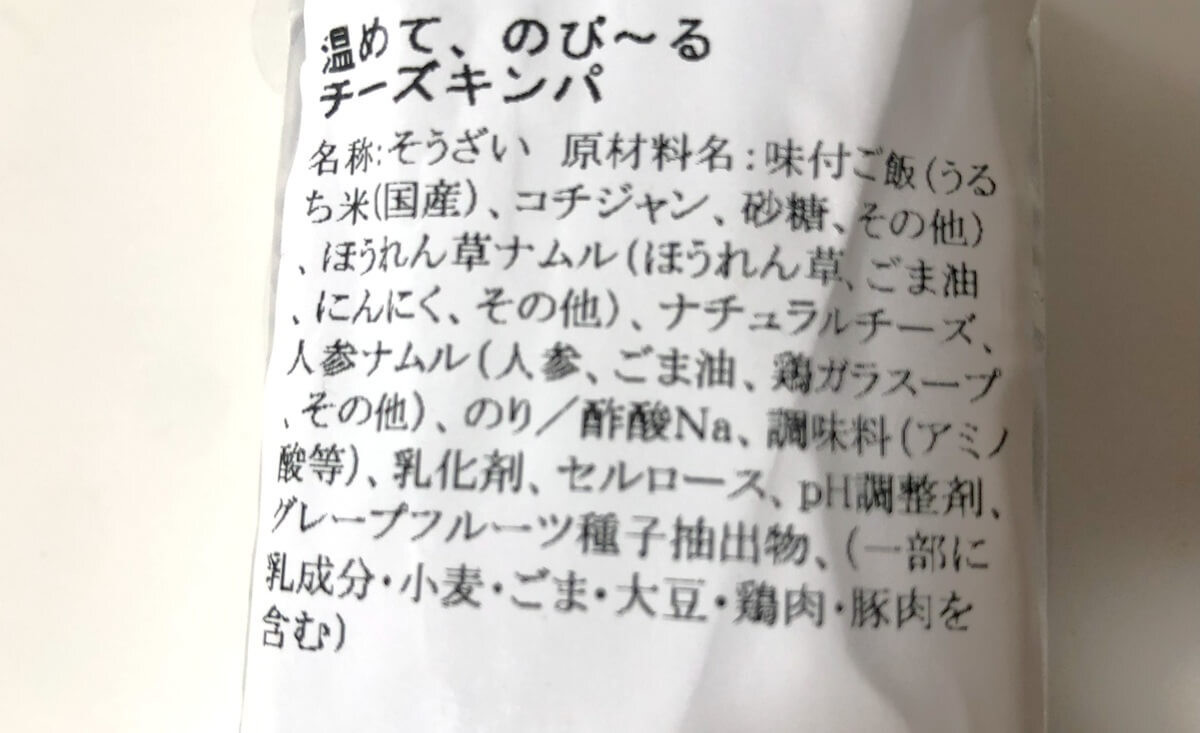 温めて、のび〜る
チーズキンパ
名称:そうざい 原材料名:味付ご飯(うる
ち米(国産)、コチジャン、砂糖、その他)
、ほうれん草ナムル(ほうれん草、ごま油
、にんにく、その他)、ナチュラルチーズ、
人参ナムル(人参、ごま油、鶏ガラスープ
、その他)、のり/酢酸Na、調味料(アミノ
酸等)、乳化剤、セルロース、pH調整剤、
グレープフルーツ種子抽出物、(一部に
乳成分・小麦・ごま・大豆・鶏肉・豚肉を
含む)